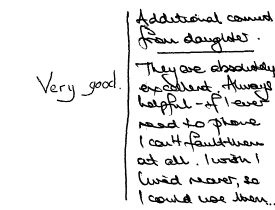 Very good.
Additional comment
from daughter.
They are absolutely
excellent. Always
helpful - if I ever
need to phone
I can't fault them
at all. I wish I
lived nearer, so
I could use them..